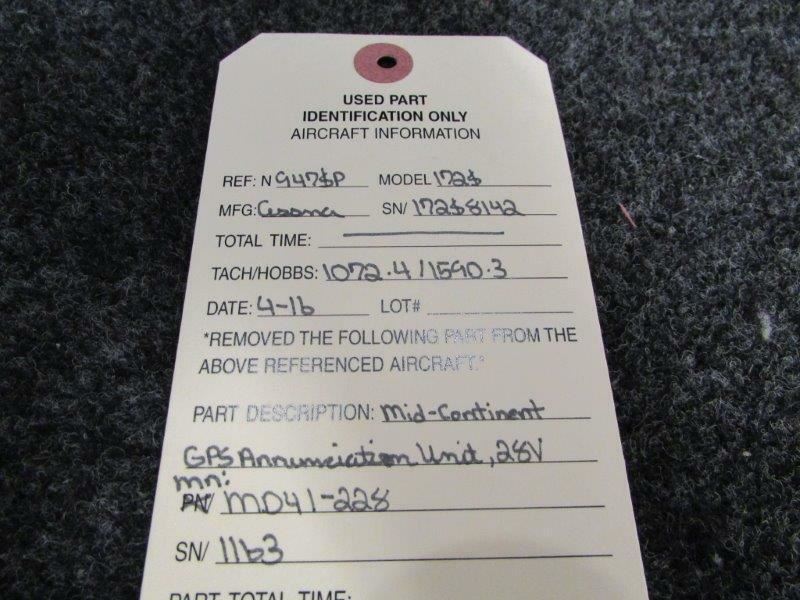 USED PART
IDENTIFICATION ONLY
AIRCRAFT INFORMATION
REF: N 947SP MODEL 172S
MFG: Cessna SN/ 172S8142
TOTAL TIME:
TACH/HOBBS: 1072.4/1590.3
DATE: 4-16 LOT#
*REMOVED THE FOLLOWING PART FROM THE
ABOVE REFERENCED AIRCRAFT.*
PART DESCRIPTION: Mid-Continent
GPS Annunciation Unit, 28V
mn:
PN/ MD41-228
SN/ 1163
PART TOTAL TIME: